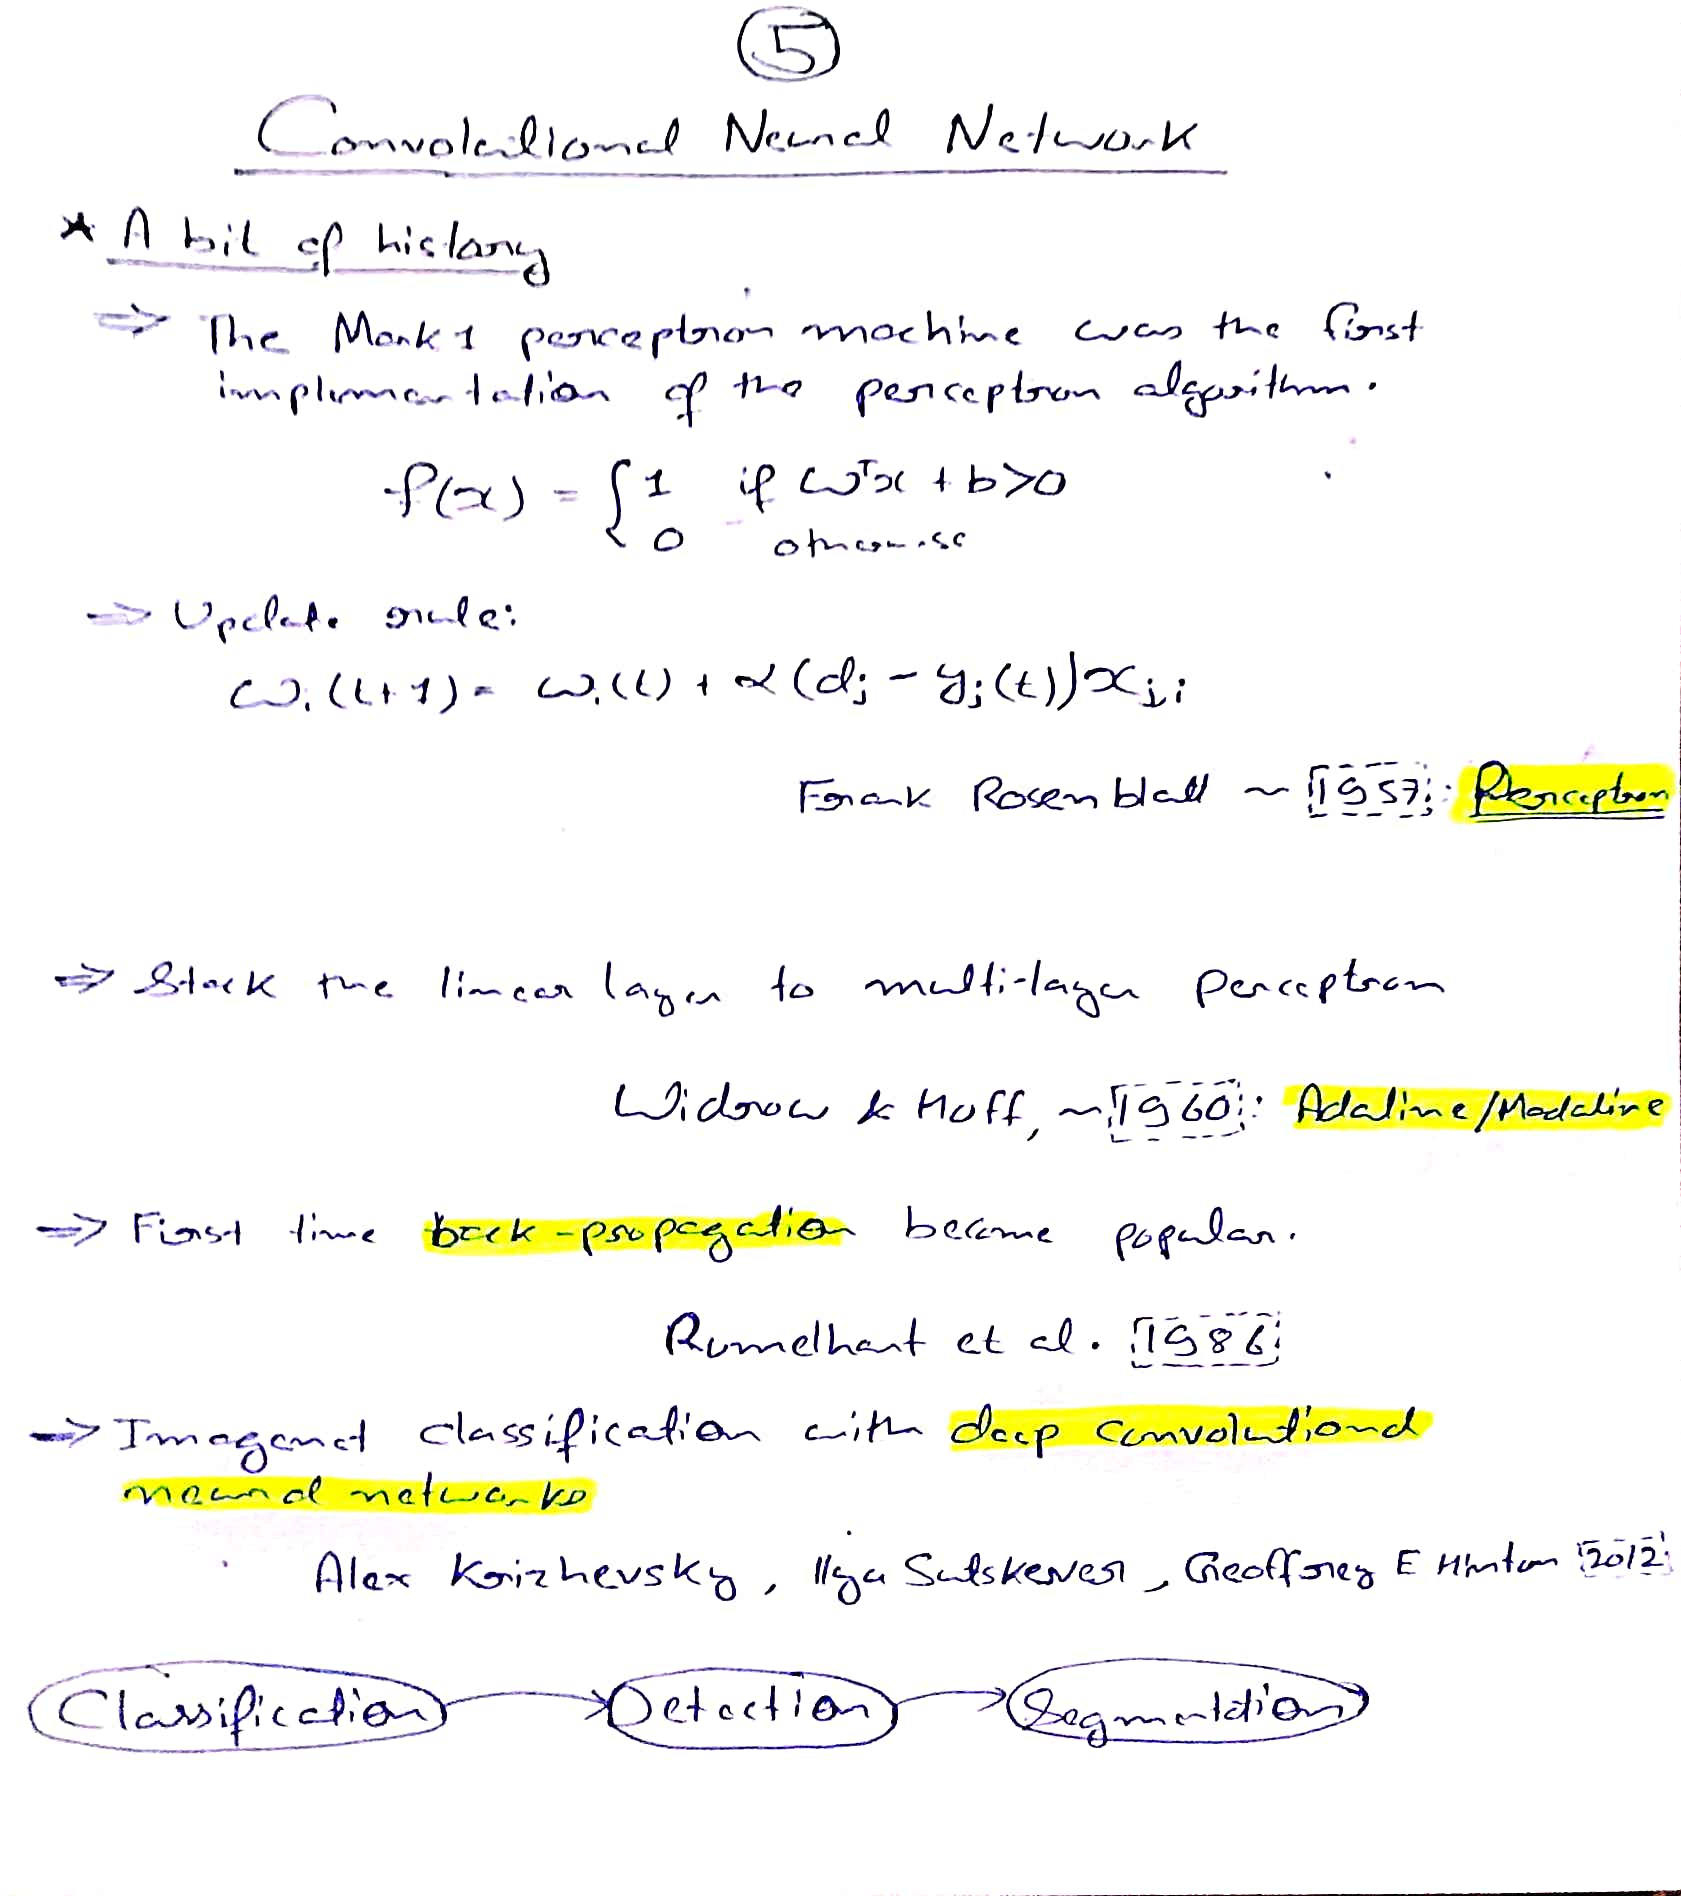 5
Convolutional Neural Network
* A bit of history
⇒ The Mark 1 perceptron machine was the first
implementation of the perceptron algorithm.
f(x) = { 1 if wᵀx + b > 0
0 otherwise
⇒ Update rule:
wᵢ(t+1) = wᵢ(t) + α(dⱼ - yⱼ(t))xⱼ,ᵢ
Frank Rosenblatt ~ 1957: Perceptron
⇒ Stack the linear layer to multi-layer perceptron
Widrow & Hoff, ~ 1960: Adaline/Madaline
⇒ First time back-propagation became popular.
Rumelhart et al. 1986
⇒ Imagenet classification with deep convolutional
neural networks
Alex Krizhevsky, Ilya Sutskever, Geoffrey E Hinton 2012
Classification → Detection → Segmentation